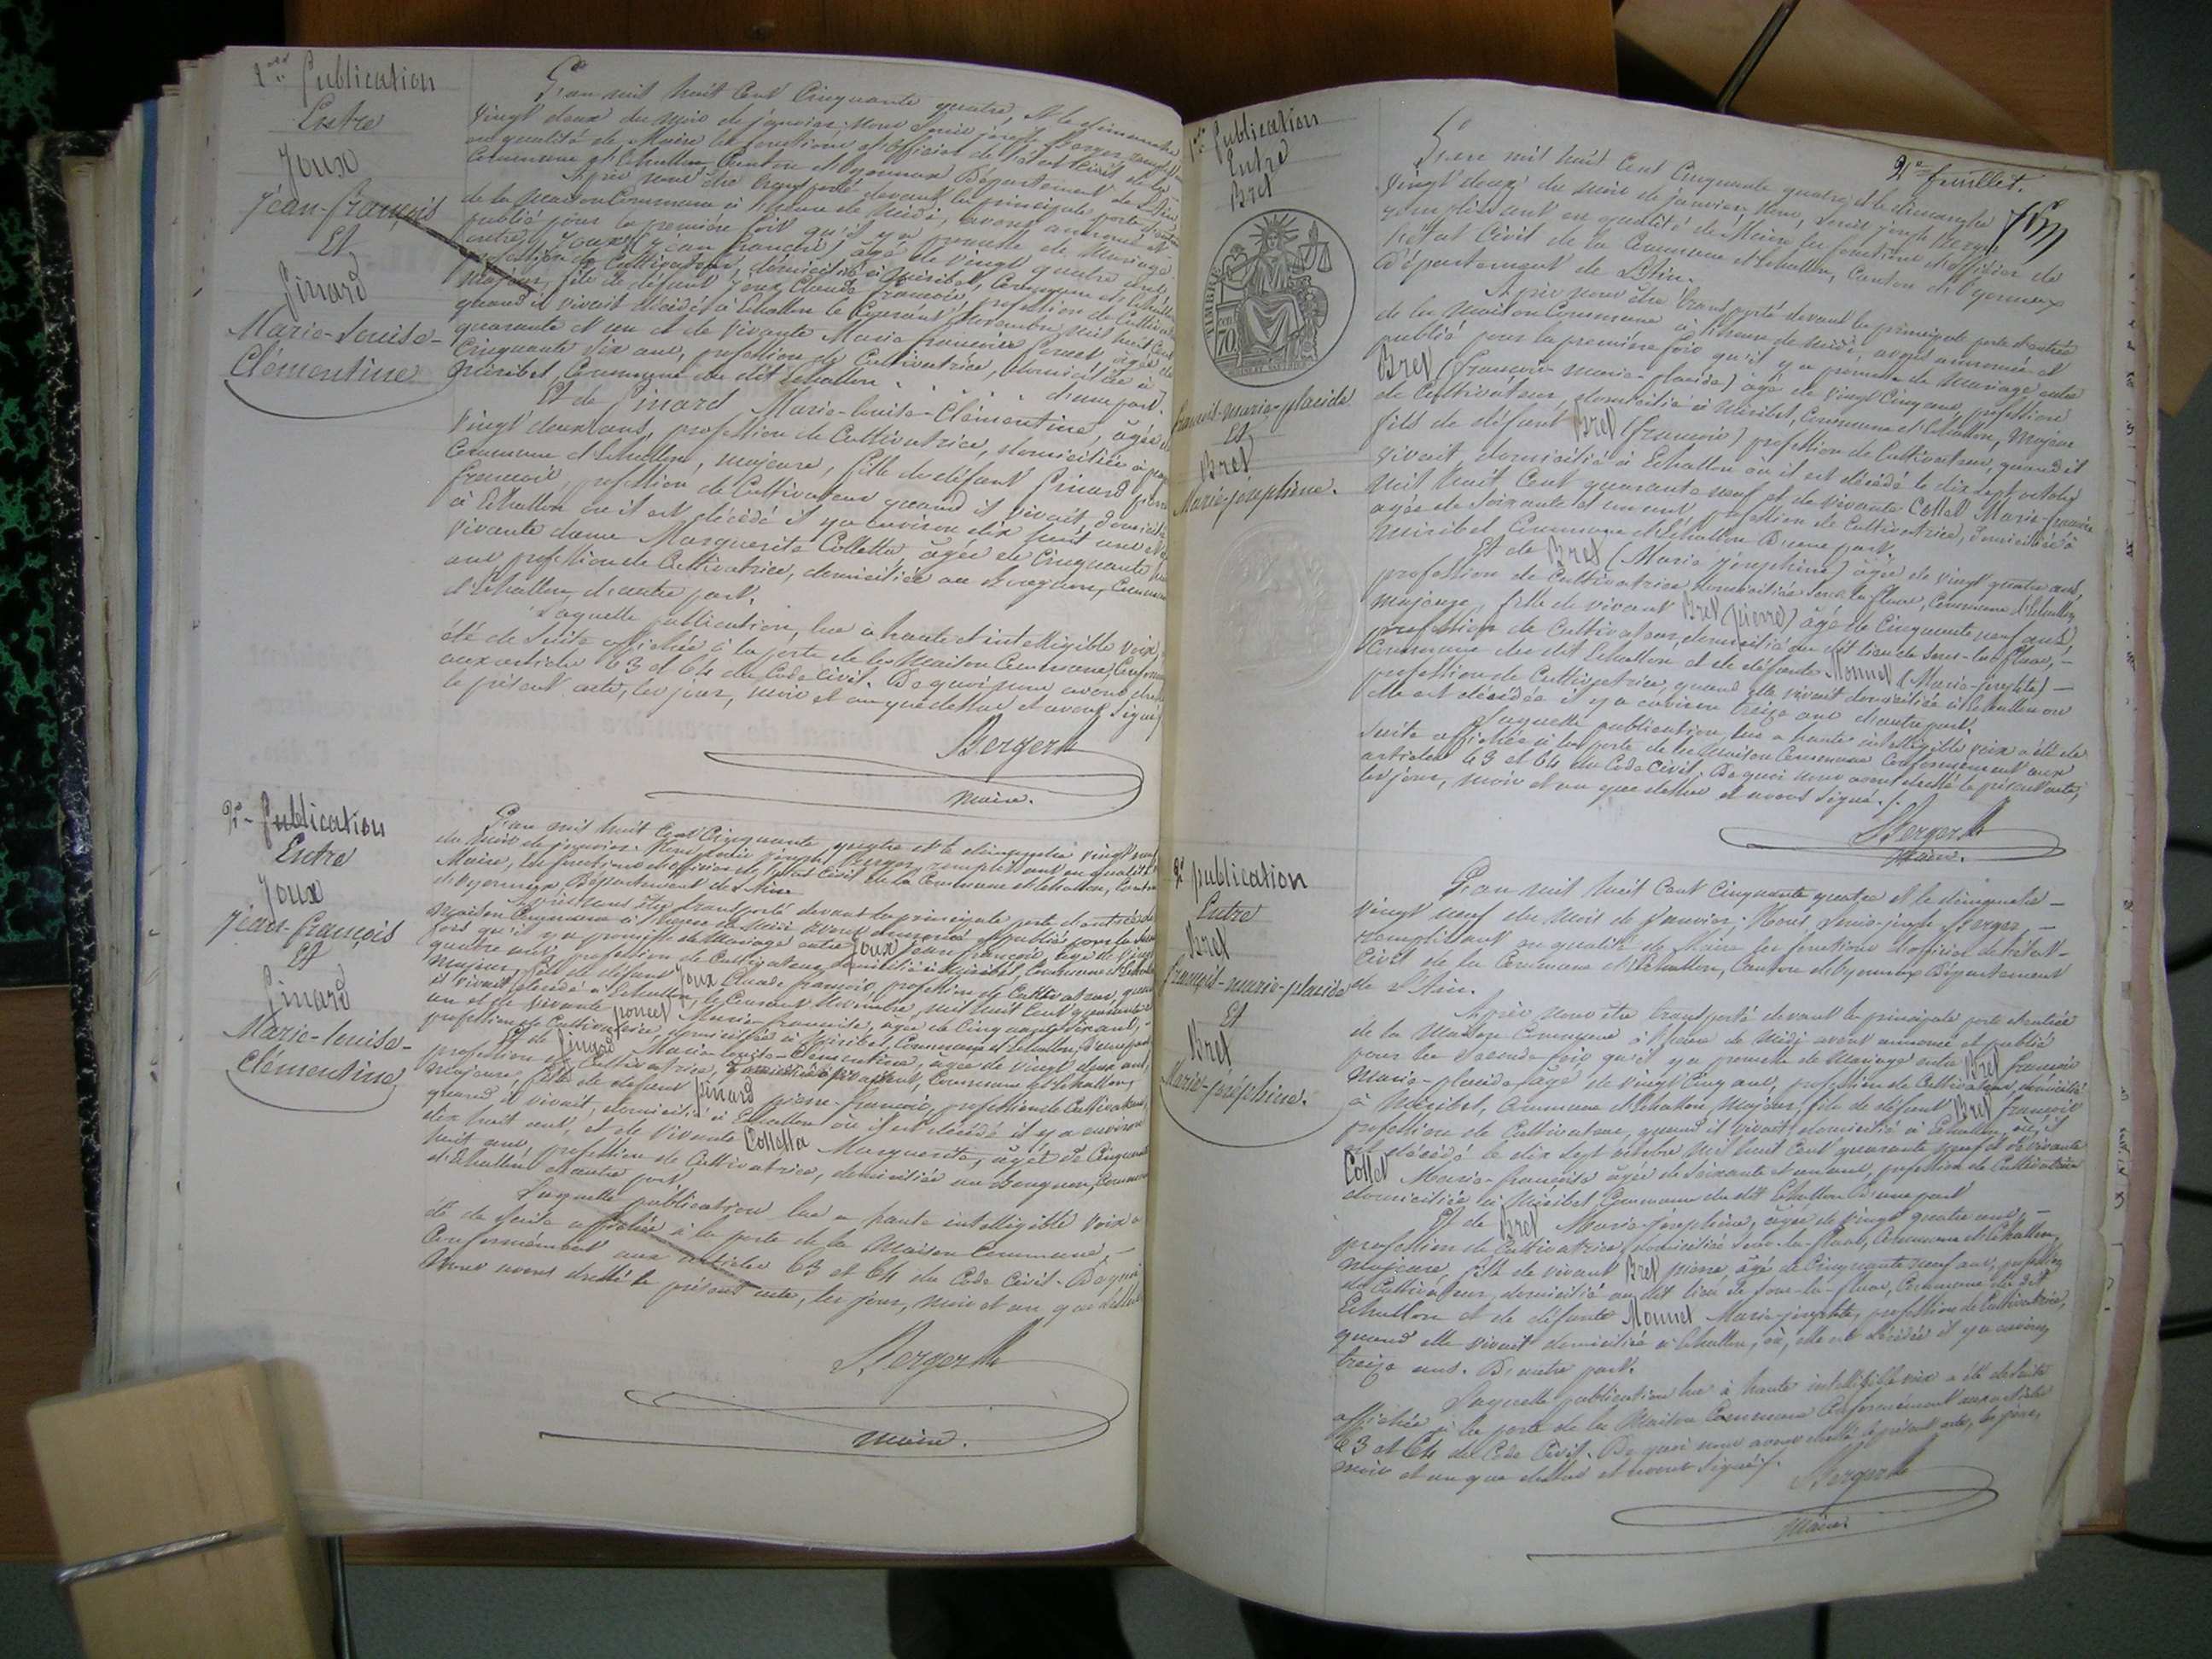 1ère Publication
Entre
Joux
Jéan-françois
Et
Pinard
Marie-Louise-
Clémentine
L'an mil huit Cent Cinquante quatre, et le dimanche
vingt deux du mois de janvier, Nous Louis joseph Berger, remplissant
en qualité de Maire les fonctions d'officier de l'état Civil de la
Commune d'Echallon, Canton d'Oyonnax Département de l'Ain
Après nous être transporté devant la principale porte d'entrée
de la Maison Commune à l'heure de Midi, avons annoncé et
publié pour la première fois qu'il y a promesse de Mariage
entre Joux (jean françois) âgé de vingt quatre ans,
profession de Cultivateur, domicilié à Miribel, Commune d'Echallon
Majeur, fils de défunt Joux Claude françois, profession de Cultivateur
quand il vivait décédé à Echallon le Courant Novembre mil huit Cent
quarante et un et de vivante Marie françoise Poncet, âgée de
Cinquante six ans, profession de Cultivatrice, domiciliée à
Miribel, Commune du dit Echallon d'une part.
Et de Pinard Marie-louise-Clémentine, âgée de
vingt deux ans, profession de Cultivatrice, domiciliée à
Commune d'Echallon, majeure, fille de défunt Pinard pierre
françois, profession de Cultivateur quand il vivait, domicilié
à Echallon où il est décédé il y a environ dix huit ans et de
vivante dame Marguerite Colletta, âgée de Cinquante huit
ans profession de Cultivatrice, domiciliée au Commune
d'Echallon, d'autre part.
Laquelle publication, lue à haute et intelligible voix a
été de suite affichée à la porte de la Maison Commune, Conformément
aux articles 63 et 64 du Code Civil. De quoi nous avons dressé
le présent acte, les jour, mois et an que dessus et avons signé
Berger
Maire.
2e Publication
Entre
Joux
Jéan-françois
Et
Pinard
Marie-louise-
Clémentine
L'an mil huit Cent Cinquante quatre et le dimanche vingt neuf
du Mois de janvier. Nous Louis joseph Berger, remplissant en qualité de
Maire, les fonctions d'officier de l'état Civil de la Commune d'Echallon, Canton
d'Oyonnax, Département de l'Ain
Après nous être transporté devant la principale porte d'entrée de la
Maison Commune à l'heure de Midi avons annoncé et publié pour la seconde
fois qu'il y a promesse de Mariage entre Joux jean françois, âgé de vingt
quatre ans, profession de Cultivateur domicilié à Miribel, Commune d'Echallon
Majeur, fils de défunt Joux Claude françois, profession de Cultivateur, quand
il vivait, décédé à Echallon, le Courant Novembre, mil huit Cent quarante
un et de vivante Poncet Marie-françoise, âgée de Cinquante six ans,
profession de Cultivatrice, domiciliée à Miribel, Commune d'Echallon, d'une part
Et de Pinard Marie-louise-Clémentine, âgée de vingt deux ans,
profession de Cultivatrice, domiciliée Commune d'Echallon,
majeure, fille de défunt Pinard pierre-françois, profession de Cultivateur,
quand il vivait, domicilié à Echallon où il est décédé il y a environ
dix huit ans, et de vivante Colletta Marguerite, âgée de Cinquante
huit ans, profession de Cultivatrice, domiciliée au Commune
d'Echallon d'autre part.
Laquelle publication lue à haute intelligible voix a
été de suite affichée à la porte de la Maison Commune,
Conformément aux articles 63 et 64 du Code Civil. De quoi
Nous avons dressé le présent acte, les jour, mois et an que dessus
Berger
Maire.
2e feuillet.
1re Publication
Entre
Bret
TIMBRE
70
françois-marie-placide
Et
Bret
Marie-joséphine.
L'an mil huit Cent Cinquante quatre, et le dimanche
vingt deux du mois de janvier, Nous, Louis joseph Berger
remplissant en qualité de Maire les fonctions d'officier de
l'état Civil de la Commune d'Echallon, Canton d'Oyonnax
Département de l'Ain.
Après nous être transporté devant la principale porte d'entrée
de la Maison Commune à l'heure de midi, avons annoncé et
publié pour la première fois qu'il y a promesse de Mariage entre
Bret (françois-marie-placide) âgé de vingt Cinq ans, profession
de Cultivateur, domicilié à Miribel, Commune d'Echallon, Majeur
fils de défunt Bret (françois) profession de Cultivateur, quand il
vivait, domicilié à Echallon où il est décédé le dix sept octobre
mil huit Cent quarante neuf et de vivante Collet Marie-françoise
âgée de soixante et un ans, profession de Cultivatrice, domiciliée à
Miribel Commune d'Echallon D'une part.
Et de Bret (Marie Joséphine) âgée de vingt quatre ans,
profession de Cultivatrice domiciliée Sous-la-fluae, Commune d'Echallon
majeure, fille de vivant Bret (pierre) âgé de Cinquante neuf ans,
profession de Cultivateur, domicilié au dit lieu de Sous-la-fluae,
Commune du dit Echallon et de défunte Monnet (Marie-josephte)
profession de Cultivatrice, quand elle vivait domiciliée à Echallon où
elle est décédée il y a environ treize ans d'autre part.
Laquelle publication lue à haute intelligible voix a été de
suite affichée à la porte de la Maison Commune Conformément aux
articles 63 et 64 du Code Civil. De quoi nous avons dressé le présent acte,
les jour, mois et an que dessus et avons signé.
Berger
Maire.
2e publication
Entre
Bret
françois-marie-placide
Et
Bret
Marie-joséphine.
L'an mil huit Cent Cinquante quatre et le dimanche
vingt neuf du Mois de Janvier; Nous, Louis-joseph Berger,
remplissant en qualité de Maire les fonctions d'officier de l'état
Civil de la Commune d'Echallon, Canton d'Oyonnax Département
de l'Ain.
Après nous être transporté devant la principale porte d'entrée
de la Maison Commune à l'heure de Midi avons annoncé et publié
pour la seconde fois qu'il y a promesse de Mariage entre Bret françois
Marie-placide âgé de vingt Cinq ans, profession de Cultivateur, domicilié
à Miribel, Commune d'Echallon Majeur, fils de défunt Bret françois
profession de Cultivateur, quand il vivait, domicilié à Echallon, où il
est décédé le dix sept octobre mil huit Cent quarante neuf et de vivante
Collet Marie-françoise âgée de soixante et un ans, profession de Cultivatrice
domiciliée à Miribel, Commune du dit Echallon D'une part
Et de Bret Marie-joséphine, âgée de vingt quatre ans,
profession de Cultivatrice, domiciliée Sous-la-fluae, Commune d'Echallon,
Majeure, fille de vivant Bret pierre âgé de Cinquante neuf ans, profession
de Cultivateur, domicilié au dit lieu de Sous-la-fluae, Commune du dit
Echallon et de défunte Monnet Marie-josephte, profession de Cultivatrice,
quand elle vivait domiciliée à Echallon, où, elle est décédée il y a environ
treize ans. D'autre part.
Laquelle publication lue à haute intelligible voix a été de suite
affichée à la porte de la Maison Commune Conformément aux articles
63 et 64 du Code Civil. De quoi nous avons dressé le présent acte, les jour,
mois et an que dessus et avons signé.
Berger
Maire.